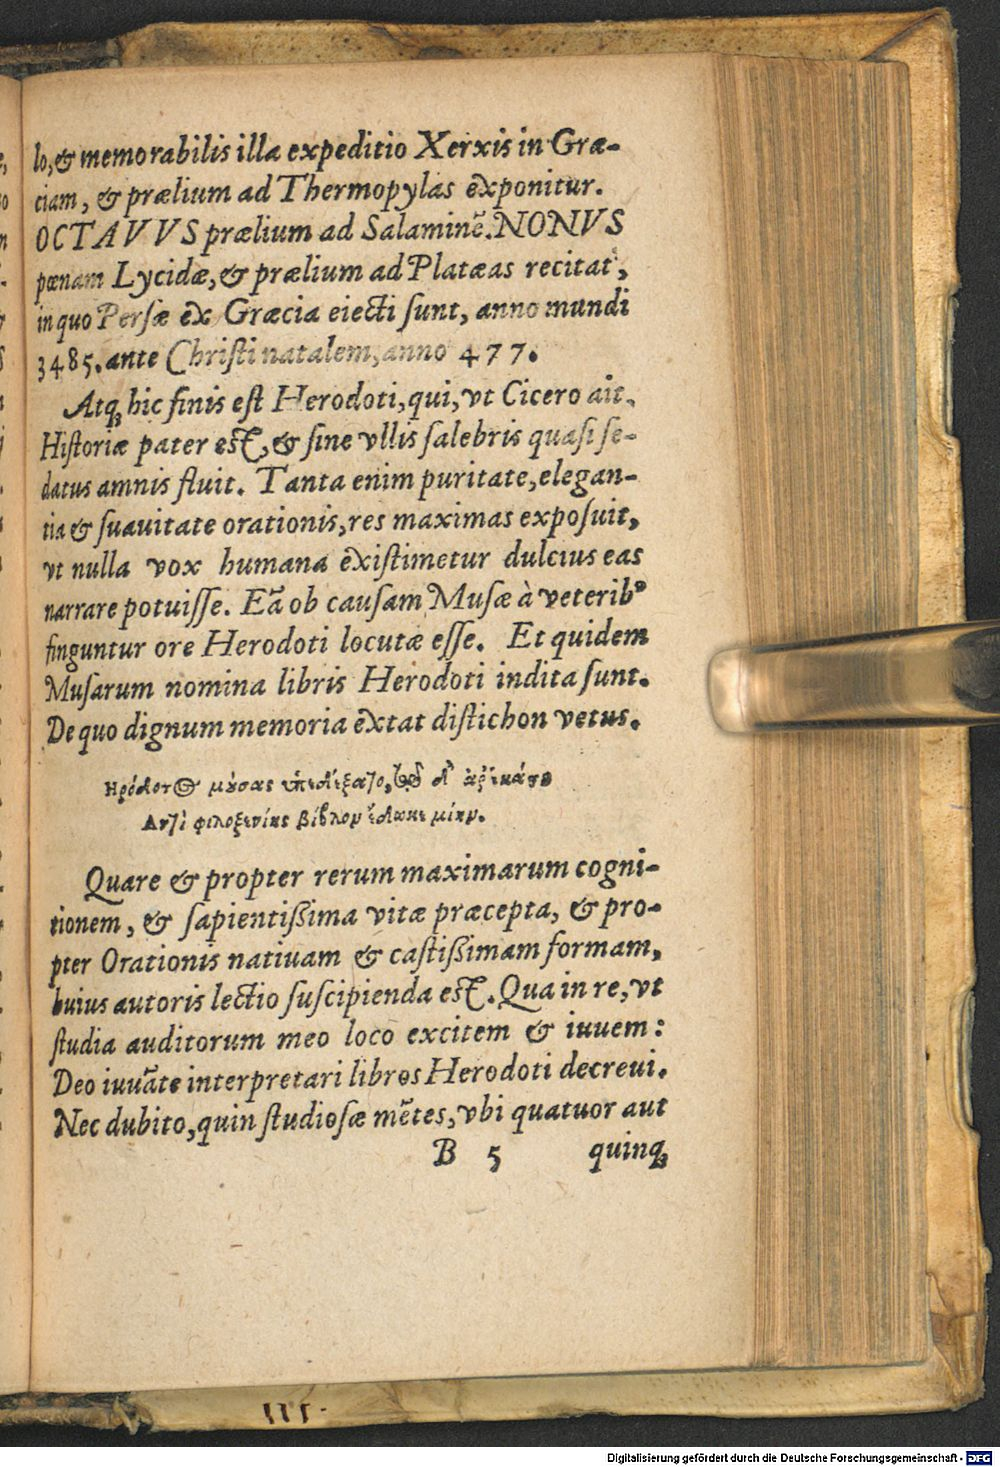 lo, & memorabilis illa expeditio Xerxis in Græ-
ciam, & prælium ad Thermopylas exponitur.
OCTAVVS prælium ad Salaminē. NONVS
pœnam Lycidæ, & prælium ad Platæas recitat,
in quo Persæ ex Græcia eiecti sunt, anno mundi
3485. ante Christi natalem, anno 477.
Atq; hic finis est Herodoti, qui, vt Cicero ait,
Historiæ pater est, & sine vllis salebris quasi se-
datus amnis fluit. Tanta enim puritate, elegan-
tia & suauitate orationis, res maximas exposuit,
vt nulla vox humana existimetur dulcius eas
narrare potuisse. Eā ob causam Musæ à veterib⁹
finguntur ore Herodoti locutæ esse. Et quidem
Musarum nomina libris Herodoti indita sunt.
De quo dignum memoria extat distichon vetus.
Ηρόδοτος μούσας ὑπεδέξατο, τῷ δ' ἄρ' ἑκάστη
Αντὶ φιλοξενίης βίβλον ἔδωκε μίην.
Quare & propter rerum maximarum cogni-
tionem, & sapientißima vitæ præcepta, & pro-
pter Orationis natiuam & castißimam formam,
huius autoris lectio suscipienda est. Qua in re, vt
studia auditorum meo loco excitem & iuuem:
Deo iuuāte interpretari libros Herodoti decreui.
Nec dubito, quin studiosæ mētes, vbi quatuor aut
B 5 quinq;
Digitalisierung gefördert durch die Deutsche Forschungsgemeinschaft - DFG